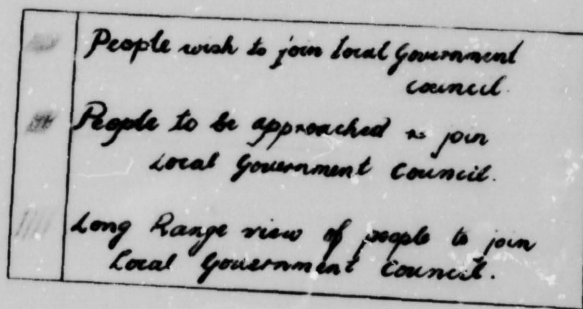 People wish to join Local Government
Council.
People to be approached to join
Local Government Council.
Long Range view of people to join
Local Government Council.